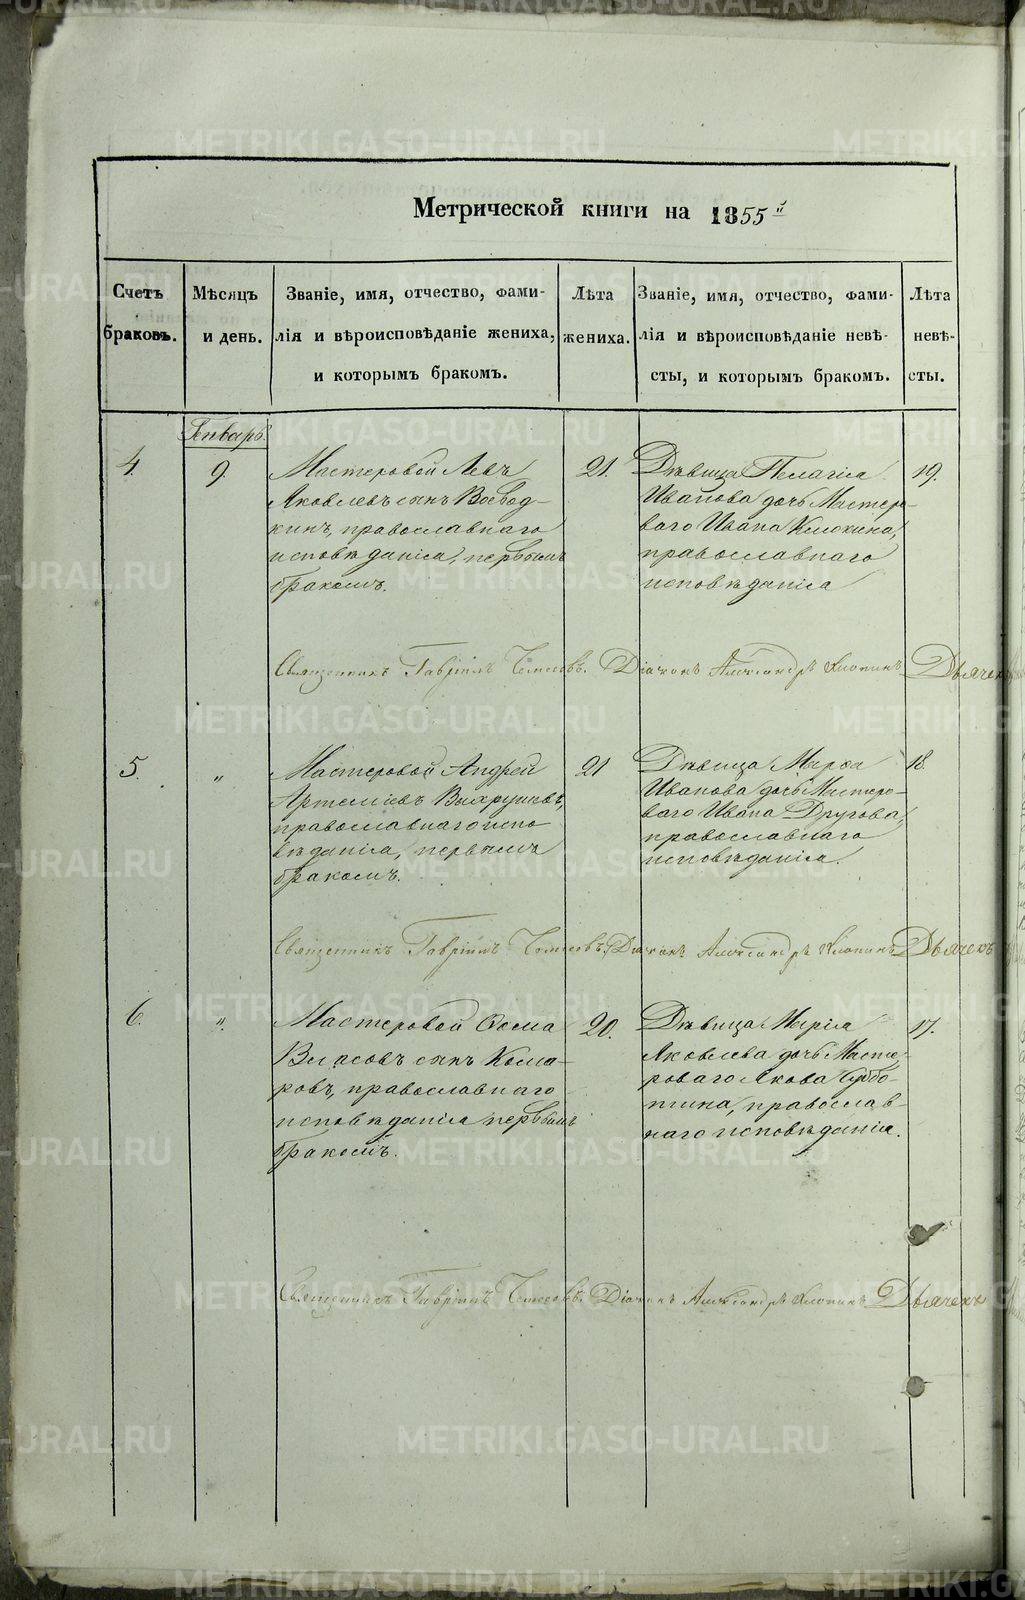 Метрической книги на 1855й
Счетъ браковъ.
Мѣсяцъ и день.
Званіе, имя, отчество, фами-
лія и вѣроисповѣданіе жениха,
и которымъ бракомъ.
Лѣта жениха.
Званіе, имя, отчество, фами-
лія и вѣроисповѣданіе невѣ-
сты, и которымъ бракомъ.
Лѣта невѣ-
сты.
Генварь
4. 9.
Мастеровой Левъ
Яковлевъ сынъ Воевод-
кинъ, православнаго
исповѣданія, первымъ
бракомъ.
21.
Дѣвица Пелагія
Иванова дочь Мастеро-
ваго Ивана Клюкина,
православнаго
исповѣданія
19.
Священникъ Гавріилъ Діаконъ Александръ Дьячекъ
5. "
Мастеровой Андрей
Артеміевъ Вахрушевъ,
православнаго испо
вѣданія, первымъ
бракомъ.
21
Дѣвица Марѳа
Иванова дочь Мастеро-
ваго Ивана Другова,
православнаго
исповѣданія.
18
Священникъ Гавріилъ Діаконъ Александръ Дьячекъ
6. "
Мастеровой Козма
Власовъ сынъ Кома-
ровъ, православнаго
исповѣданія первымъ
бракомъ.
20.
Дѣвица Марія
Яковлева дочь Масте-
роваго Якова Суббо-
тина, православ-
наго исповѣданія.
17.
Священникъ Гавріилъ Діаконъ Александръ Дьячекъ
METRIKI.GASO-URAL.RU